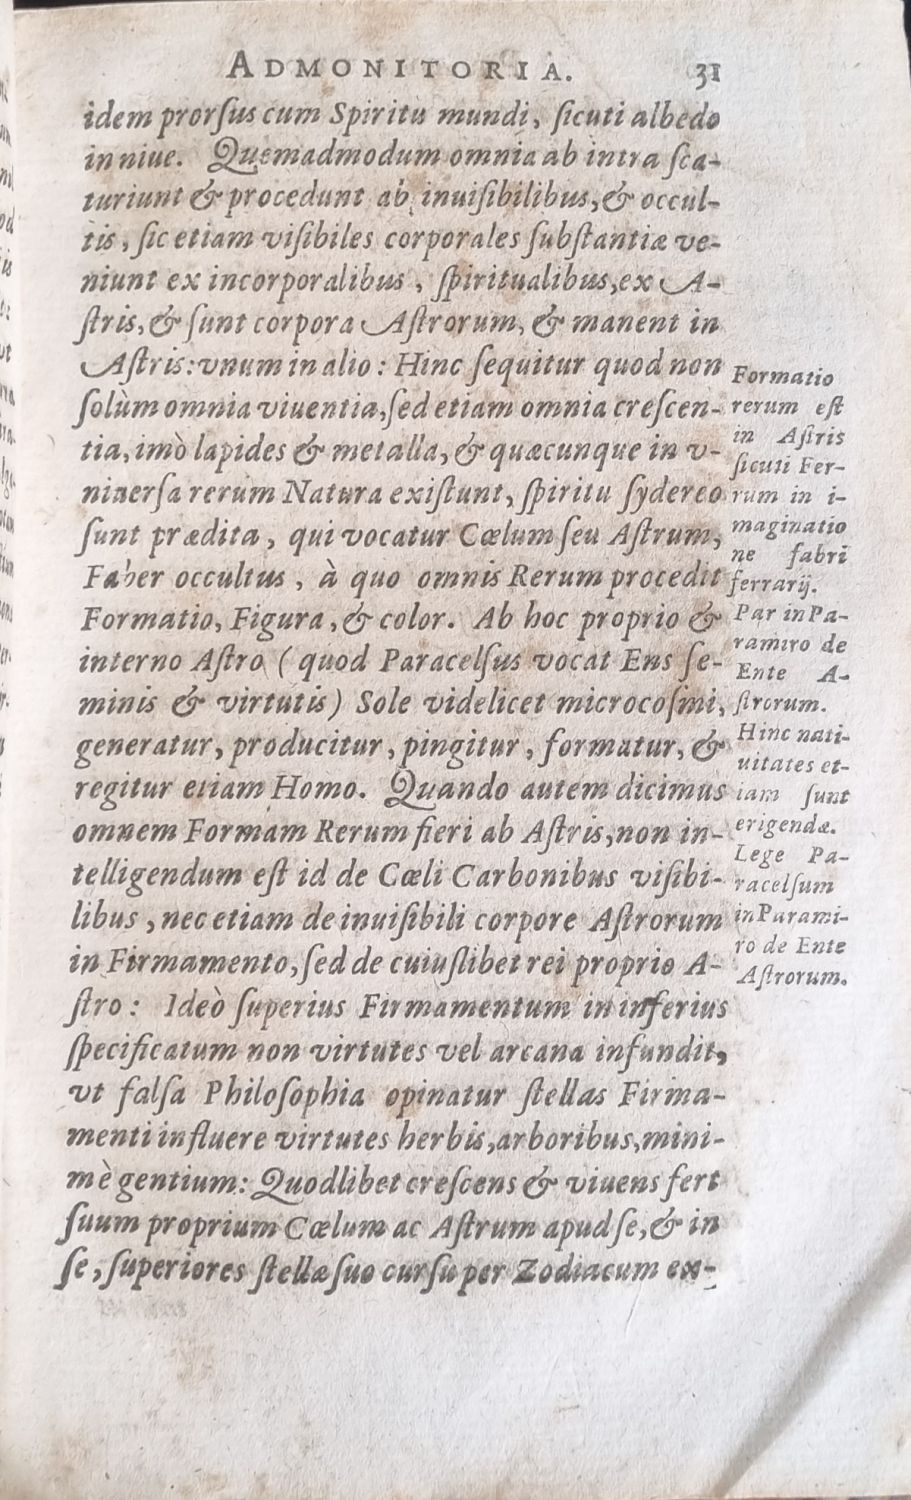 ADMONITORIA. 31
idem prorſus cum Spiritu mundi, ſicuti albedo
in niue. Quemadmodum omnia ab intra ſca-
turiunt & procedunt ab inuiſibilibus, & occul-
tis, ſic etiam viſibiles corporales ſubſtantiæ ve-
niunt ex incorporalibus, ſpiritualibus, ex A-
ſtris, & ſunt corpora Aſtrorum, & manent in
Aſtris: vnum in alio: Hinc ſequitur quod non
ſolùm omnia viuentia, ſed etiam omnia creſcen-
tia, imò lapides & metalla, & quæcunque in v-
niuerſa rerum Natura exiſtunt, ſpiritu ſydereo
ſunt prædita, qui vocatur Cœlum ſeu Aſtrum,
Faber occultus, à quo omnis Rerum procedit
Formatio, Figura, & color. Ab hoc proprio &
interno Aſtro (quod Paracelſus vocat Ens ſe-
minis & virtutis) Sole videlicet microcoſmi,
generatur, producitur, pingitur, formatur, &
regitur etiam Homo. Quando autem dicimus
omnem Formam Rerum fieri ab Aſtris, non in-
telligendum eſt id de Cœli Carbonibus viſibi-
libus, nec etiam de inuiſibili corpore Aſtrorum
in Firmamento, ſed de cuiuſlibet rei proprio A-
ſtro: Ideò ſuperius Firmamentum in inferius
ſpecificatum non virtutes vel arcana infundit,
vt falſa Philoſophia opinatur ſtellas Firma-
menti influere virtutes herbis, arboribus, mini-
mè gentium: Quodlibet creſcens & viuens fert
ſuum proprium Cœlum ac Aſtrum apud ſe, & in
ſe, ſuperiores ſtellæ ſuo curſu per Zodiacum ex-
Formatio
rerum eſt
in Aſtris
ſicuti Fer-
rum in i-
maginatio
ne fabri
ferrarij.
Par in Pa-
ramiro de
Ente A-
ſtrorum.
Hinc nati-
uitates et-
iam ſunt
erigendæ.
Lege Pa-
racelſum
in Parami-
ro de Ente
Aſtrorum.